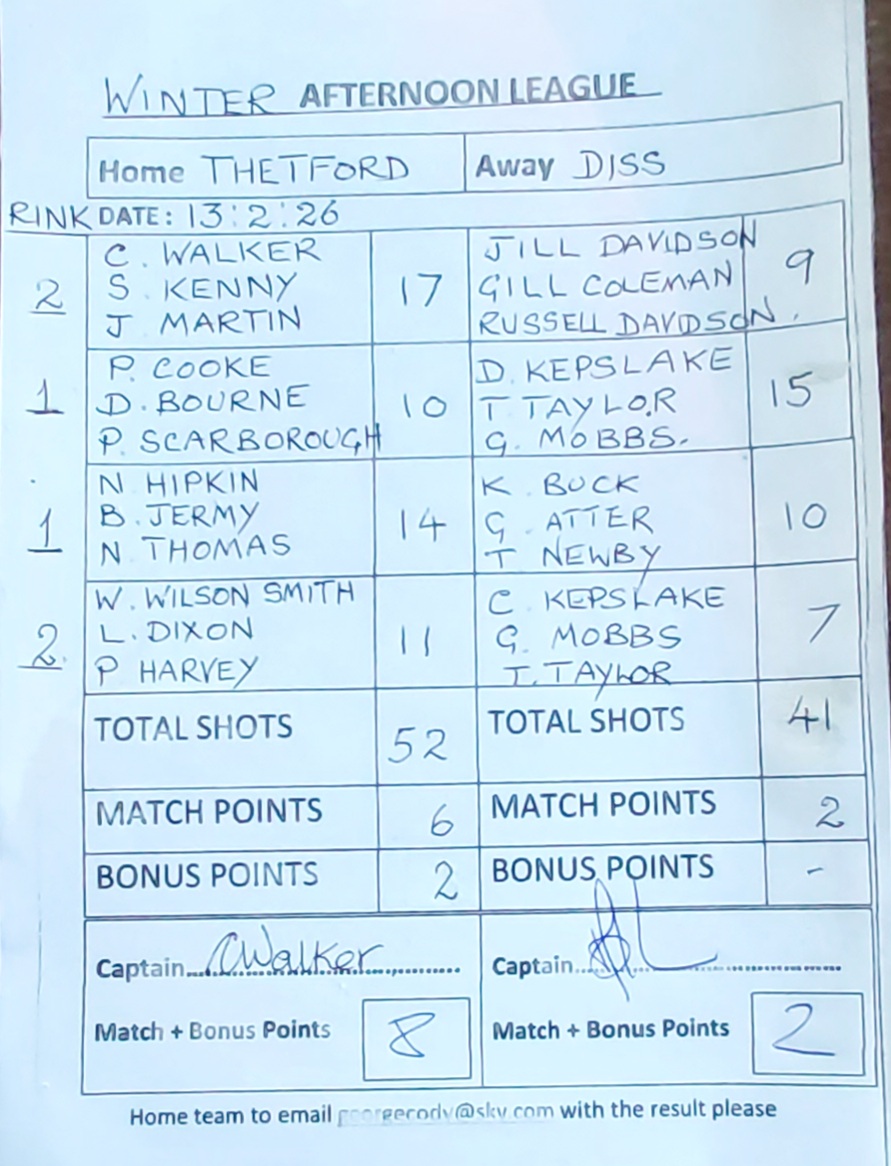 WINTER AFTERNOON LEAGUE
Home THETFORD Away DISS
RINK DATE: 13:2:26
C. WALKER JILL DAVIDSON
2 S. KENNY 17 GILL COLEMAN 9
J MARTIN RUSSELL DAVIDSON.
P. COOKE D. KEPSLAKE
1 D. BOURNE 10 T TAYLOR 15
P. SCARBOROUGH G. MOBBS.
N HIPKIN K. BUCK
1 B. JERMY 14 G. ATTER 10
N THOMAS T NEWBY
W. WILSON SMITH C. KEPSLAKE
2. L. DIXON 11 G. MOBBS 7
P HARVEY T. TAYLOR
TOTAL SHOTS 52 TOTAL SHOTS 41
MATCH POINTS 6 MATCH POINTS 2
BONUS POINTS 2 BONUS POINTS -
Captain CWalker Captain
Match + Bonus Points 8 Match + Bonus Points 2
Home team to email @sky.com with the result please